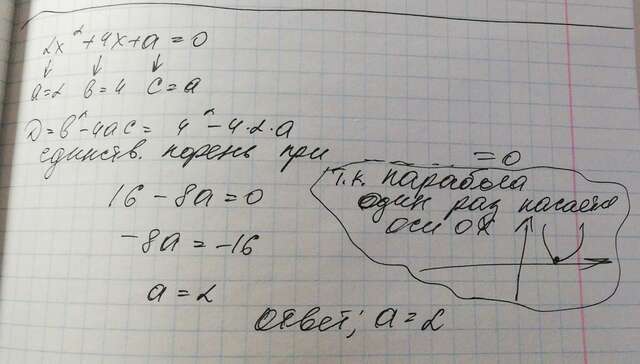 2x² + 4x + a = 0
↓ ↓ ↓
a=2 b=4 c=a
D=b²-4ac= 4²-4·2·a
единств. корень при _ _ _ _ = 0
16 - 8a = 0
-8a = -16
a = 2
т.к. парабола
один раз касается
оси OX
Ответ; a = 2